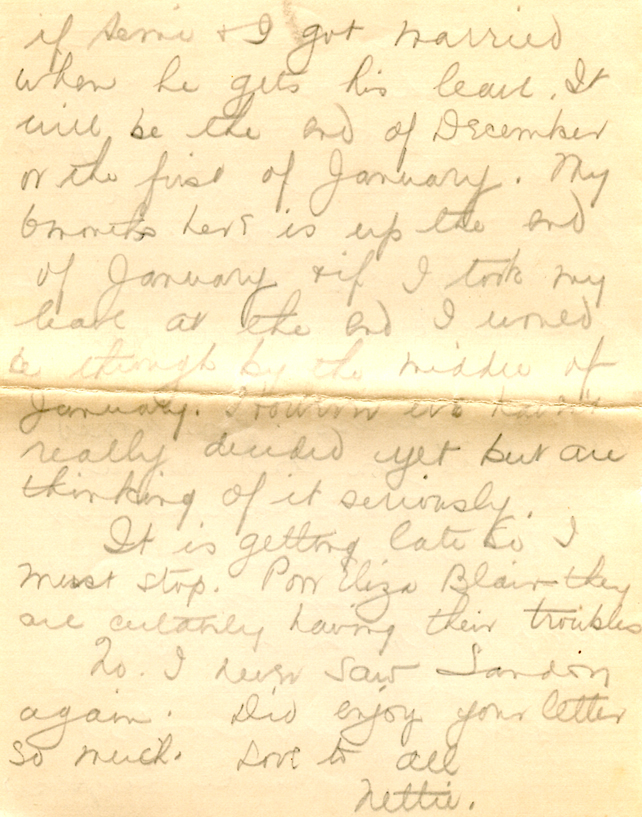 if & I got married
when he gets his leave. It
will be the end of December
or the first of January. My
6 months here is up the end
of January & if I took my
leave at the end I would
be through by the middle of
January. However we haven't
really decided yet but are
thinking of it seriously.
It is getting late so I
must stop. Poor Eliza Blair they
are certainly having their troubles
No. I never saw Landon
again. Did enjoy your letter
so much. Love to all
Nettie.